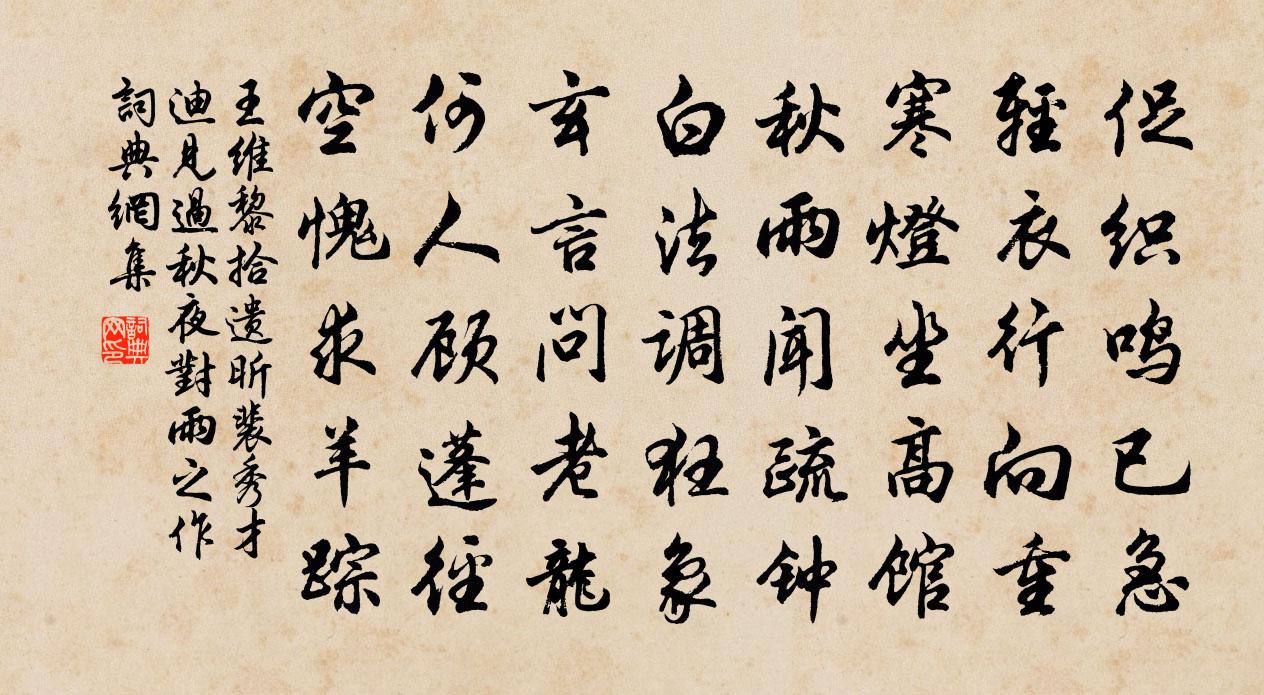 促织鸣已急
輕衣行向重
寒燈坐高馆
秋雨闻疏钟
白法调狂象
玄言问老龍
何人顾蓬径
空愧求羊踪
王維黎拾遗昕裴秀才
迪見過秋夜對雨之作
詞典網集
詞典
网印